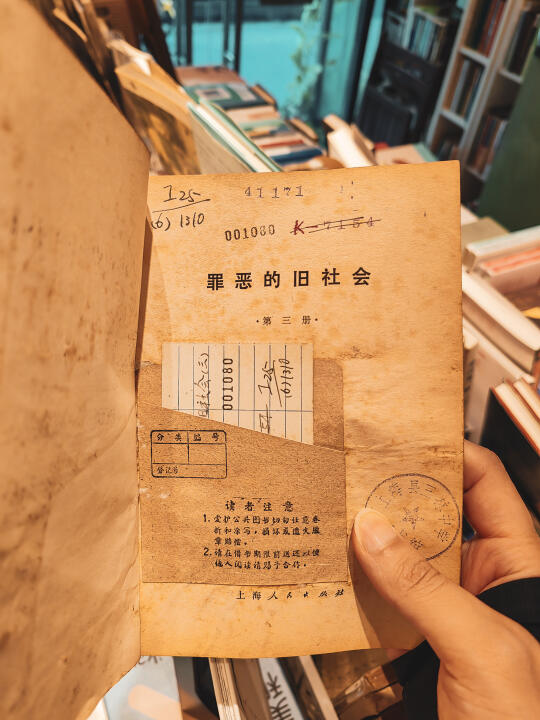 I25
41171
(6) 1310
001080
K-7154
罪恶的旧社会
·第三册·
社会(三)
001080
I25
(6)1310
分类编号
登记号
读者注意
1.爱护公共图书切勿任意卷
折和涂写，损坏及遗失照
章赔偿。
2.请在借书期限前送还以便
他人阅读请赐予合作。
上海人民出版社